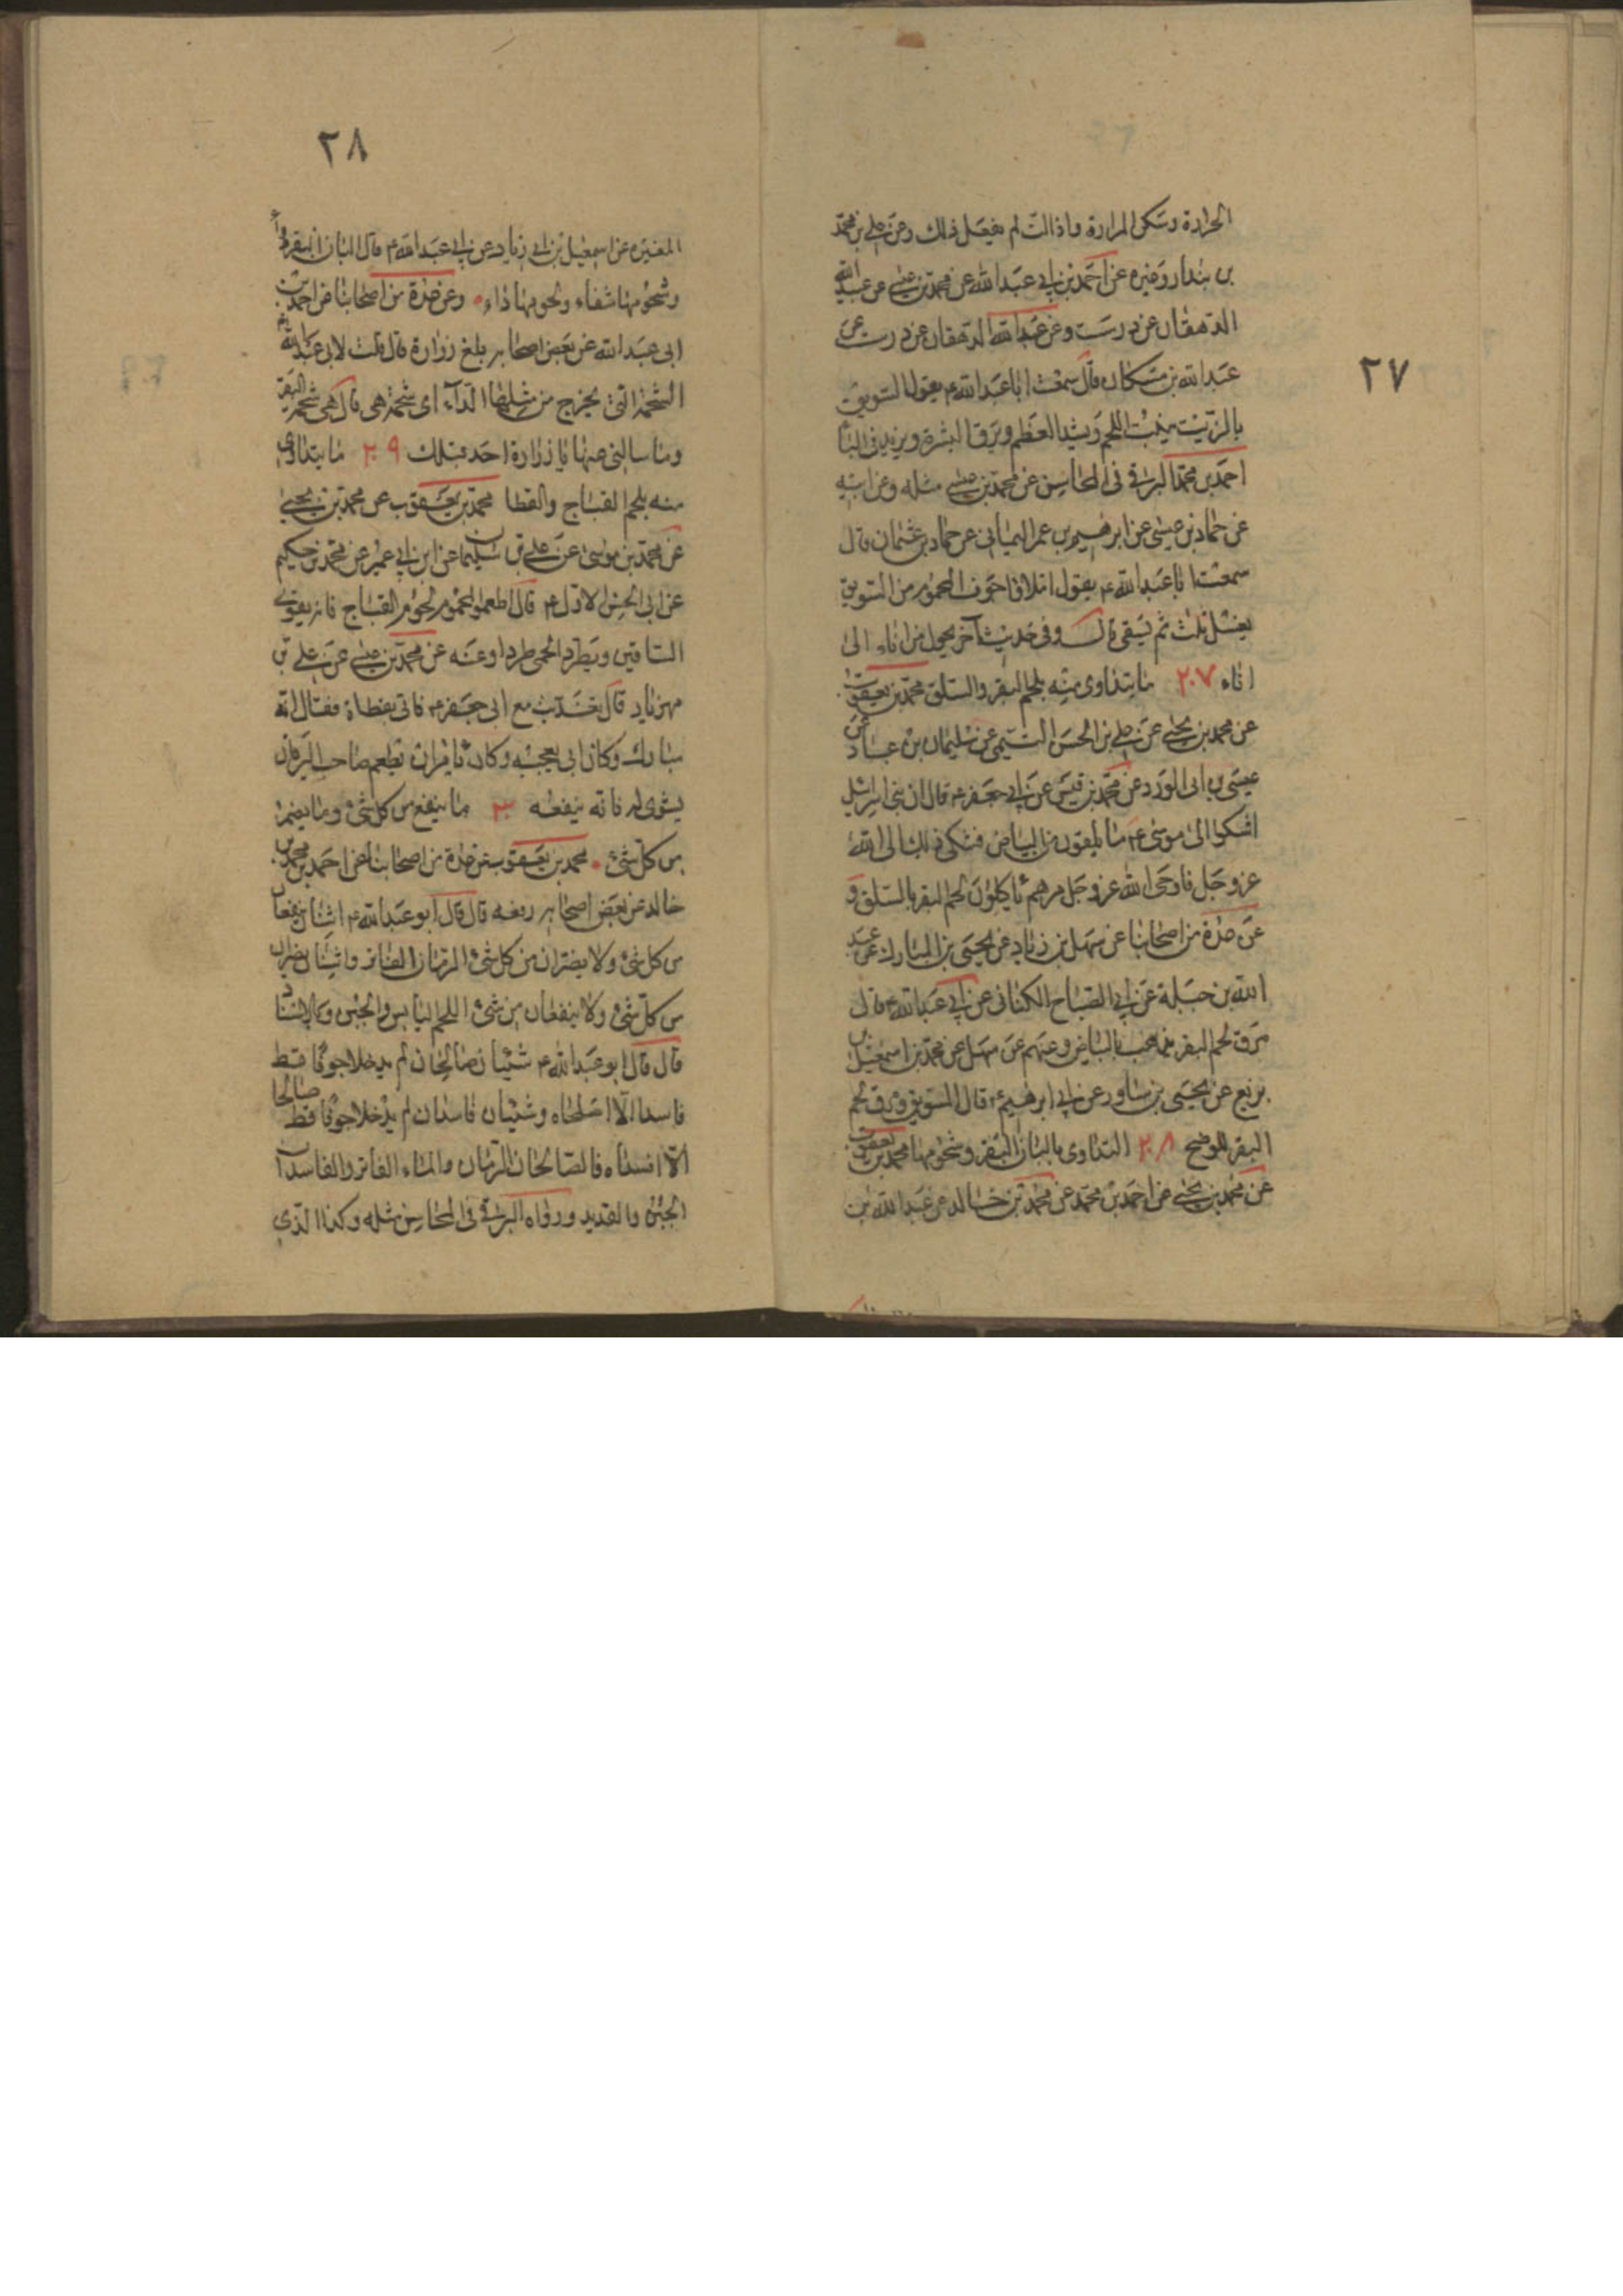 ٢٧
الحرارة وسكن المرارة واذا لت لم يفعل ذلك وعن علي بن محمد
بن بندار وغيره عن احمد بن ابي عبد الله عن محمد بن عيسى عن عبيد الله
الدهقان عن درست وعن عبد الله الدهقان عن درست عن
عبد الله بن مسكان قال سمعت ابا عبد الله ع يقول السويق
بالزيت ينبت اللحم ويشد العظم ويرق البشرة ويزيد في الباه
احمد بن محمد البرقي في المحاسن عن محمد بن عيسى مثله وعن ابيه
عن حماد بن عيسى عن ابرهيم بن عمر اليماني عن حماد بن عثمان قال
سمعت ابا عبد الله ع يقول املاؤا جوف المحموم من السويق
يغسل ثلث ثم يسقى قال وفي حديث آخر يحول من اناء الى
اناء ٢٠٧ ما يتداوى منه بلحم البقر والسلق محمد بن يعقوب
عن محمد بن يحيى عن علي بن الحسن التيمي عن سليمان بن عباد عن
عيسى بن ابي الورد عن محمد بن قيس عن ابي جعفر ع قال ان بني اسرائيل
اشكوا الى موسى ع ما يلقون من البياض فشكى ذلك الى الله
عز وجل فاوحى الله عز وجل مرهم ياكلون لحم البقر بالسلق و
عن عدة من اصحابنا عن سهل بن زياد عن يحيى بن المبارك عن عبد
الله بن جبلة عن ابي الصباح الكناني عن ابي عبد الله ع قال
مرق لحم البقر يذهب بالبياض وعنهم عن سهل عن محمد بن اسمعيل بن
بزيع عن يحيى بن مساور عن ابي ابرهيم ع قال السويق ومرق لحم
البقر للوضح ٢٠٨ التداوى بالبان البقر وشحومها محمد بن يعقوب
عن محمد بن يحيى عن احمد بن محمد عن محمد بن خالد عن عبد الله بن
٢٨
المغيرة عن اسمعيل بن ابي زياد عن ابي عبد الله ع قال البان البقر دواء
وشحومها شفاء ولحومها داء وعن عدة من اصحابنا عن احمد بن
ابي عبد الله عن بعض اصحابه بلغ زرارة قال قلت لابي عبد الله ع
الشحمة التي يخرج من مثلها الداء اى شحمة هي قال هي شحمة البقر
وما سالني عنها يا زرارة احد قبلك ٢٠٩ ما يتداوى
منه بلحم القباج والقطا محمد بن يعقوب عن محمد بن يحيى
عن محمد بن موسى عن علي بن سليمان عن ابن ابي عمير عن محمد بن حكيم
عن ابي الحسن الاول ع قال اطعموا المحموم لحوم القباج فانه يقوى
الساقين ويطرد الحمى طردا وعنه عن محمد بن عيسى عن علي بن
مهزياد قال تغديت مع ابي جعفر ع فاتى بقطاة فقال انه
مبارك وكان ابي يعجبه وكان يامر ان تطعم صاحب اليرقان
يشوى له فانه ينفعه ٣٠ ما ينفع من كل شئ وما يضر
من كل شئ محمد بن يعقوب عن عدة من اصحابنا عن احمد بن محمد بن
خالد عن بعض اصحابه رفعه قال قال ابو عبد الله ع اثنان ينفعان
من كل شئ ولا يضران من كل شئ الرمان الفاتر واثنان يضران
من كل شئ ولا ينفعان من شئ اللحم اليابس والجبن وبالاسناد
قال قال ابو عبد الله ع شيئان صالحان لم يدخلا جوفا قط
فاسدا الا اصلحاه وشيئان فاسدان لم يدخلا جوفا قط صالحا
الا افسداه فالصالحان الرمان والماء الفاتر والفاسدان
الجبن والقديد ورواه البرقي في المحاسن مثله وكذا الذي